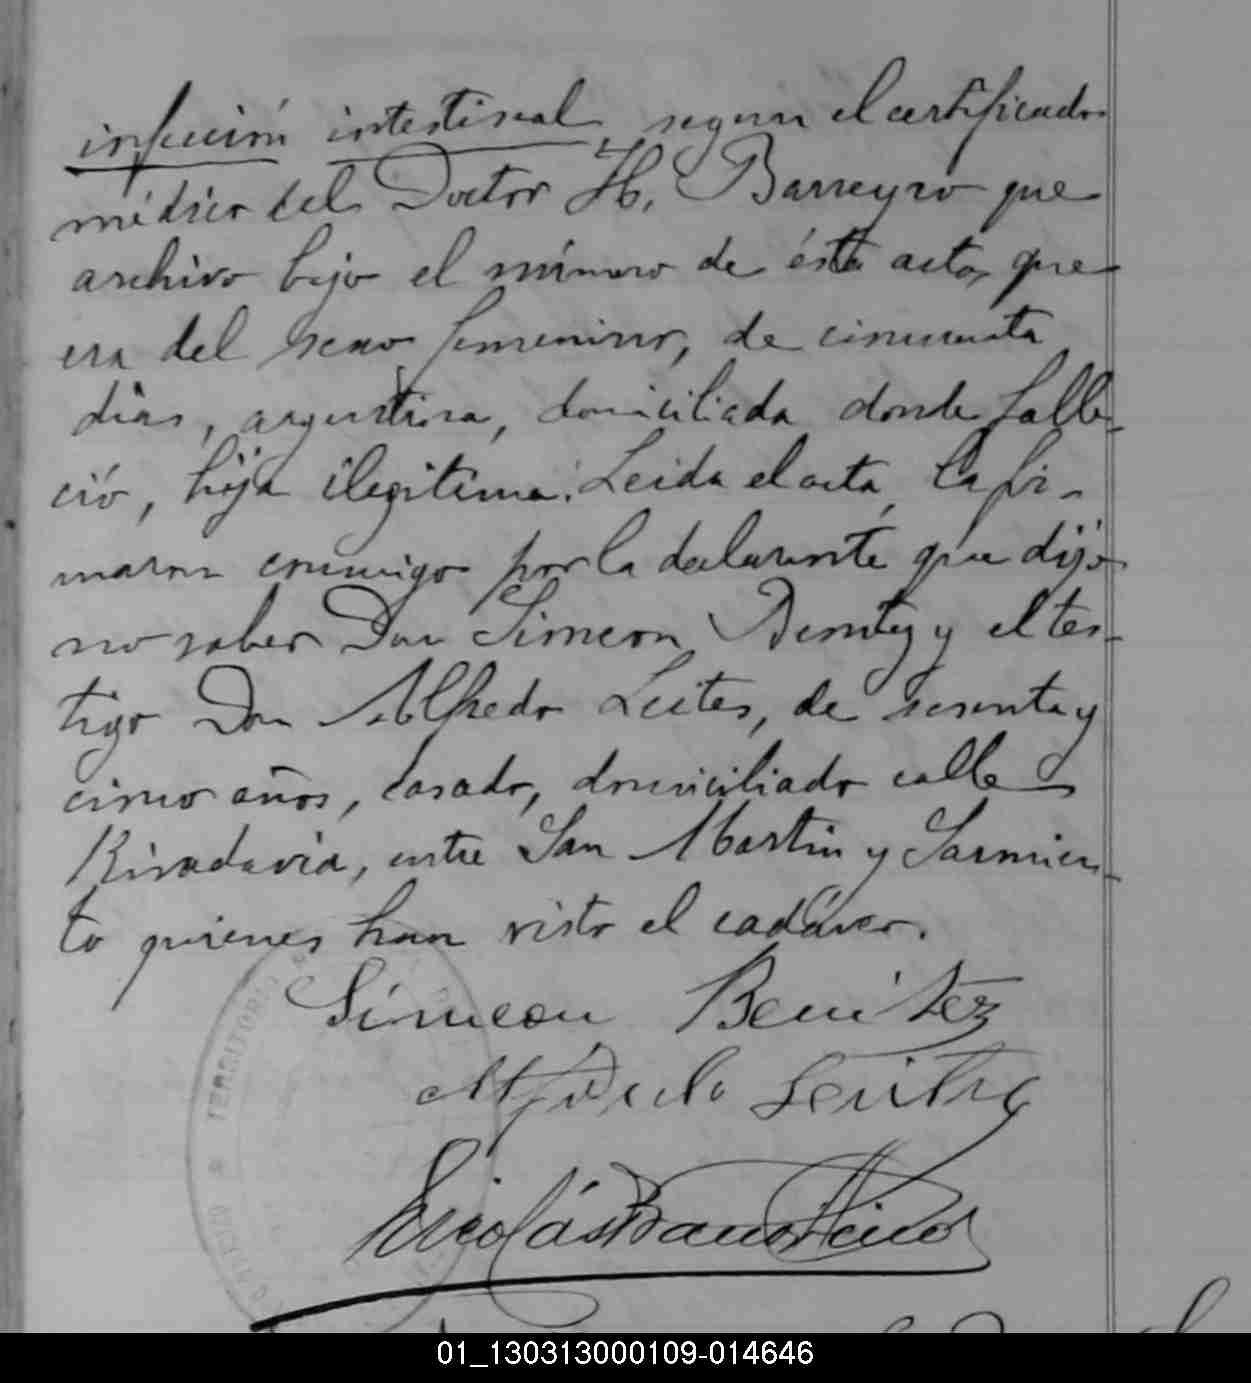 infección intestinal, según el certificado
médico del Doctor H. Barreyro que
archivo bajo el número de ésta acta, que
era del sexo femenino, de cincuenta
días, argentina, domiciliada donde falle-
ció, hija ilegitima. Leida el acta, la fir-
maron conmigo por la declarante que dijo
no saber Don Simeon Benitez y el tes-
tigo Don Alfredo Leites, de sesenta y
cinco años, casado, domiciliado calle
Rivadavia, entre San Martin y Sarmien-
to quienes han visto el cadáver.
Simeon Benitez
Alfredo Leites
Nicolás
TERRITORIO
01_130313000109-014646